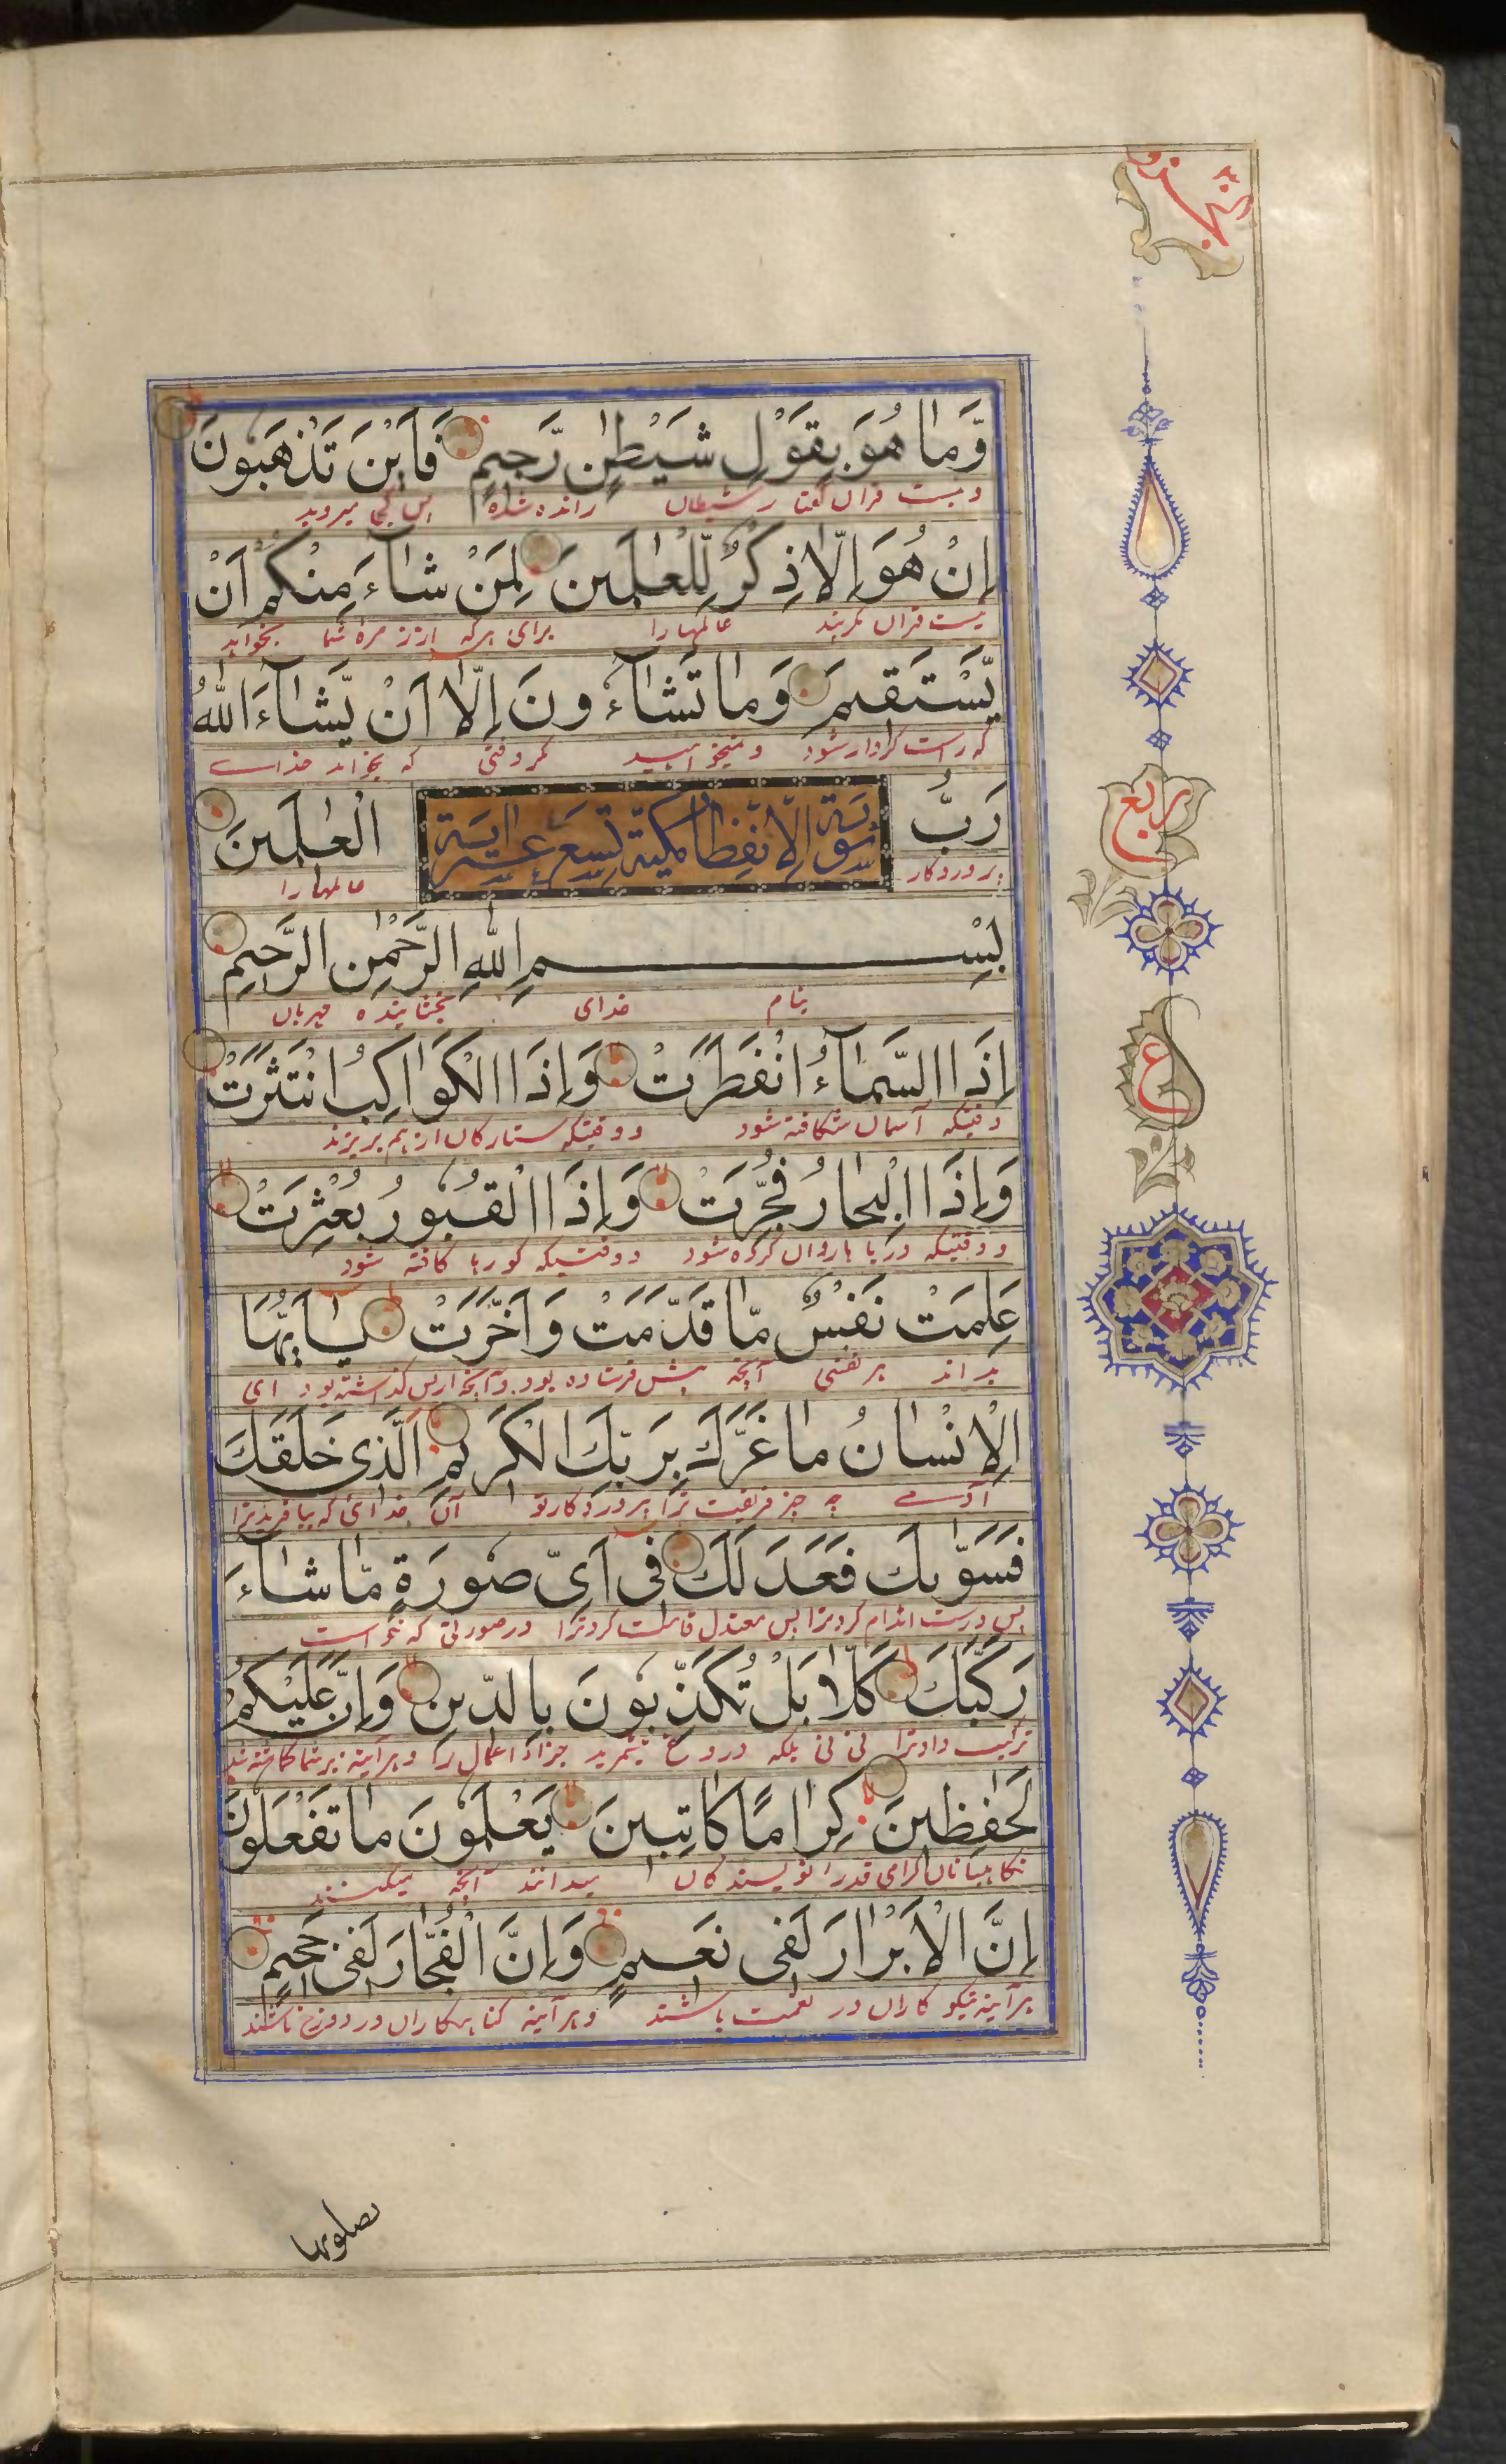 وَّمَا هُوَ بِقَوْلِ شَيْطٰنٍ رَّجِيْمٍ فَاَيْنَ تَذْهَبُوْنَ
راندهشده پس کجا میروید
اِنْ هُوَ اِلَّا ذِكْرٌ لِّلْعٰلَمِيْنَ لِمَنْ شَآءَ مِنْكُمْ اَنْ
نیست قران مگر پند عالمها را برای هرکه از زمره شما بخواهد
يَّسْتَقِيْمَ وَمَا تَشَآءُوْنَ اِلَّا اَنْ يَّشَآءَ اللّٰهُ
که راست کردار شود و نمیخواهید مگر وقتی که بخواهد خدای
رَبُّ الْعٰلَمِيْنَ
سورة الانفطار مكية تسع عشر اية
پروردگار عالمها را
بِسْمِ اللّٰهِ الرَّحْمٰنِ الرَّحِيْمِ
بنام خدای بخشاینده مهربان
اِذَا السَّمَآءُ انْفَطَرَتْ وَاِذَا الْكَوَاكِبُ انْتَثَرَتْ
وقتیکه آسمان شکافته شود و وقتیکه ستارکان از هم بریزند
وَاِذَا الْبِحَارُ فُجِّرَتْ وَاِذَا الْقُبُوْرُ بُعْثِرَتْ
و وقتیکه دریاها روان کرده شود و وقتیکه کورها کافته شود
عَلِمَتْ نَفْسٌ مَّا قَدَّمَتْ وَاَخَّرَتْ يٰٓاَيُّهَا
بداند هر نفسی آنچه پیش فرستاده بود و آنچه از پس گذاشته بود ای
الْاِنْسَانُ مَا غَرَّكَ بِرَبِّكَ الْكَرِيْمِ الَّذِيْ خَلَقَكَ
آدمے چه چیز فریفت ترا پروردکار تو آن خدائی که بیافرید ترا
فَسَوّٰىكَ فَعَدَلَكَ فِيْٓ اَيِّ صُوْرَةٍ مَّا شَآءَ
پس درست اندام کرد ترا پس معتدل قامت کرد ترا در صورتی که خواست
رَكَّبَكَ كَلَّا بَلْ تُكَذِّبُوْنَ بِالدِّيْنِ وَاِنَّ عَلَيْكُمْ
ترکیب داد ترا نی نی بلکه دروغ میشمرید جزا اعمال را و هر آینه بر شما کماشته شد
لَحٰفِظِيْنَ كِرَامًا كَاتِبِيْنَ يَعْلَمُوْنَ مَا تَفْعَلُوْنَ
نکاهبانان کرامی قدر نویسندکان میدانند آنچه میکنید
اِنَّ الْاَبْرَارَ لَفِيْ نَعِيْمٍ وَاِنَّ الْفُجَّارَ لَفِيْ جَحِيْمٍ
هر آینه نیکو کاران در نعمت باشند و هر آینه کناهکاران در دوزخ باشند
يصلونها
ربع
ع